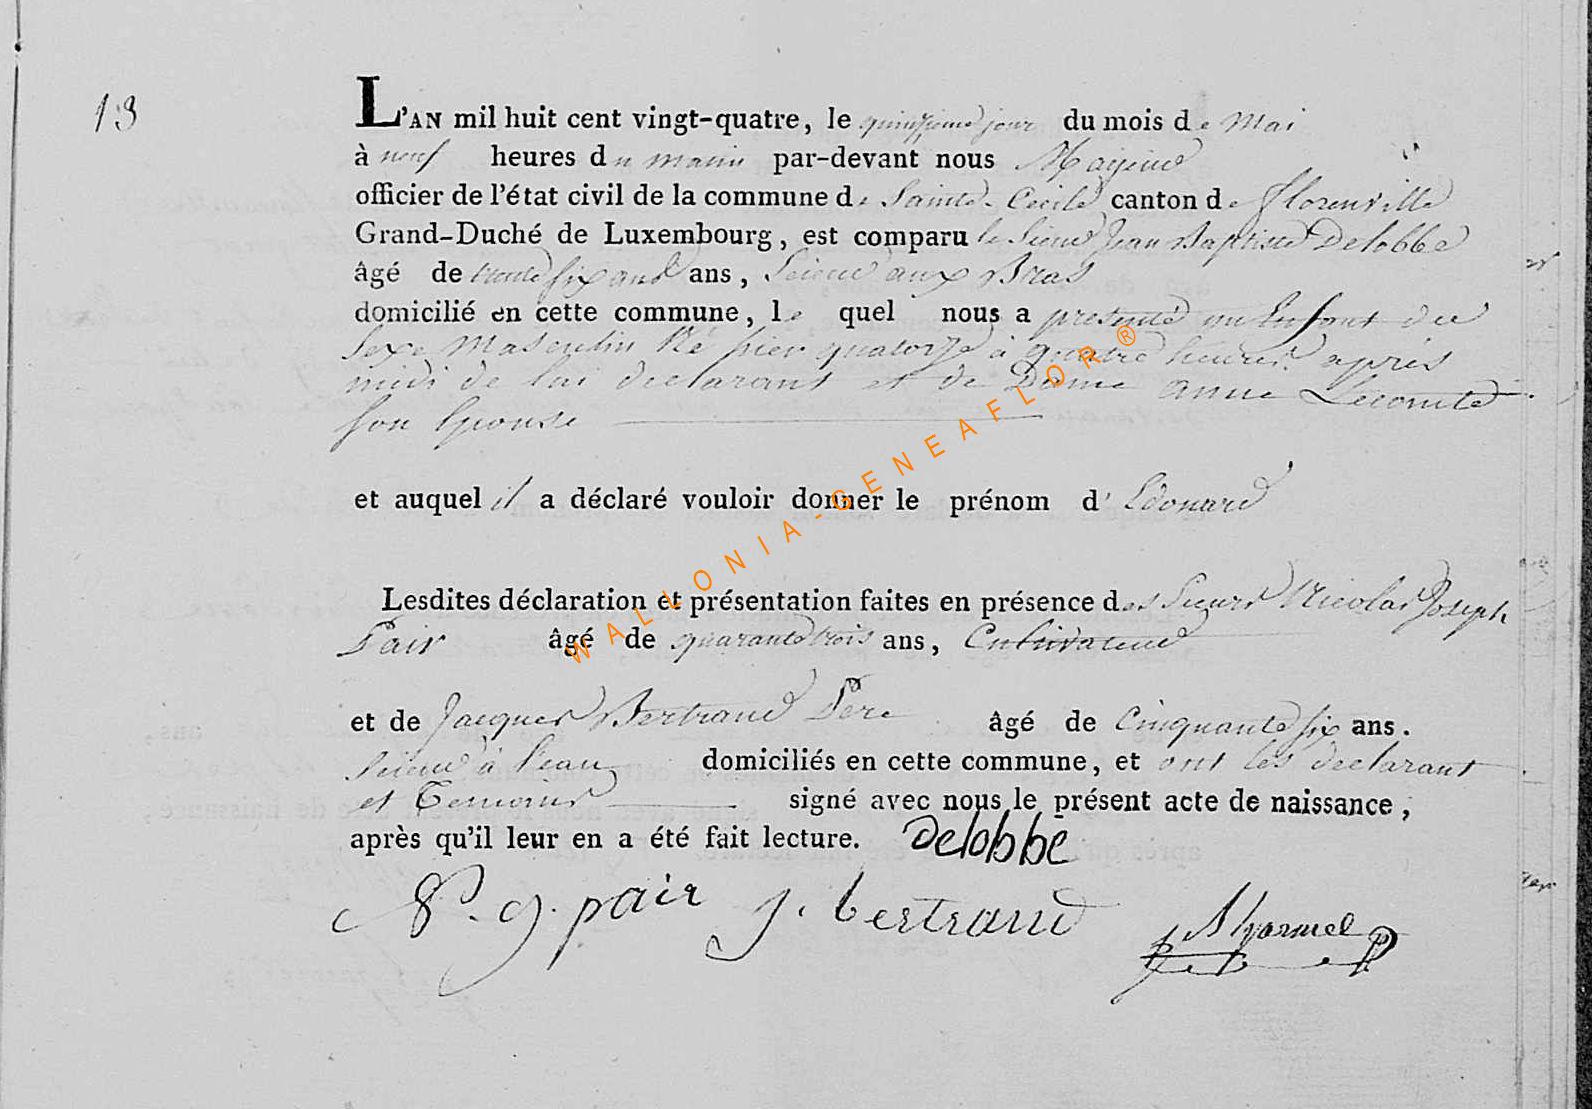 13
L'AN mil huit cent vingt-quatre, le quinzieme jour du mois de Mai
à neuf heures du matin par-devant nous Mayeur
officier de l'état civil de la commune de Sainte-Cecile canton de florenville
Grand-Duché de Luxembourg, est comparu le Sieur Jean Baptiste Delobbe
âgé de trente six ans ans, Scieur aux Bras
domicilié en cette commune, le quel nous a presenté un Enfant du
Sexe Masculin Né hier quatorze à quatre heures après
midi de lui declarant et de Dame anne Lecomte
son Epouse
et auquel il a déclaré vouloir donner le prénom d'Edouard
Lesdites déclaration et présentation faites en présence des Sieurs Nicolas Joseph
Pair âgé de quarante trois ans, Cultivateur
et de Jacques Bertrand Pere âgé de Cinquante six ans.
scieur à l'eau domiciliés en cette commune, et ont les declarant
et Temoins signé avec nous le présent acte de naissance,
après qu'il leur en a été fait lecture. Delobbe
N. j. pair j. bertrand
WALLONIA-GENEAFLOR®